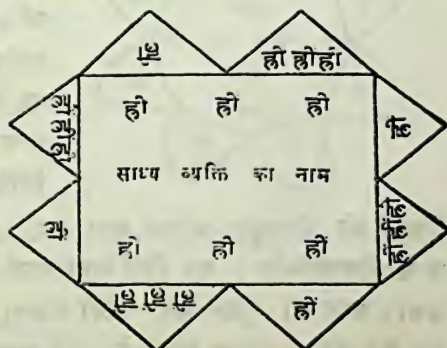 ह्रीं
ह्रीं ह्रीं ह्रीं
ह्रीं ह्रीं ह्रीं
ह्रीं
ह्रीं ह्रीं ह्रीं
साध्य व्यक्ति का नाम
ह्रीं
ह्रीं ह्रीं ह्रीं
ह्रीं ह्रीं ह्रीं
ह्रीं ह्रीं ह्रीं
ह्रीं